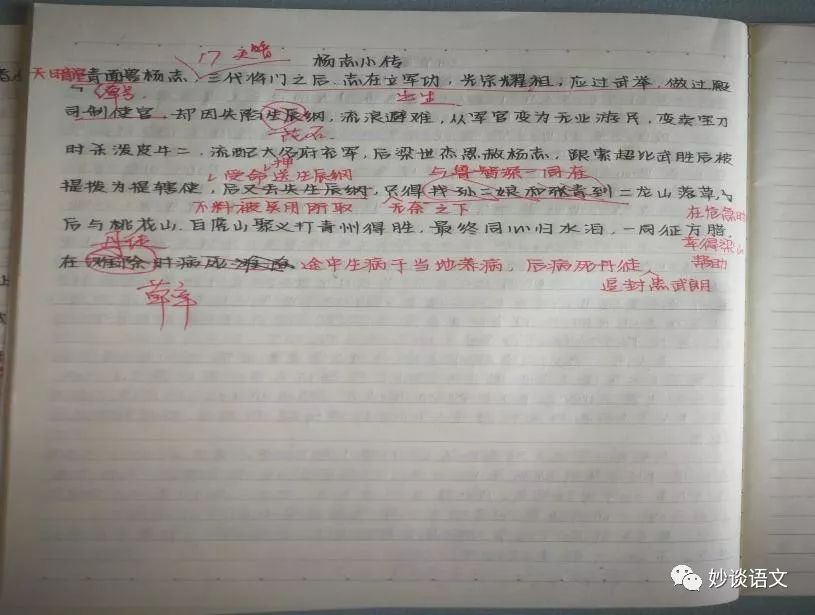 杨志小传
17 文暗
天暗星青面兽杨志、三代将门之后、志在立军功，光宗耀祖，应过武举，做过殿
绰号
出生
司制使官，却因失陷生辰纲，流浪避难，从军官变为无业游民，变卖宝刀
花石
时杀泼皮牛二，流配大名府充军，后梁世杰恩赦杨志，跟索超比武胜后被
押
受命送生辰纲
与鲁智深一同在
提拨为提辖使，后又丢失生辰纲，只得找孙二娘和张青到二龙山落草，
不料被吴用所取
无奈之下
在危急时
后与桃花山、白虎山聚义打青州得胜，最终同心归水泊，一同征方腊，
幸得梁山
丹徒
帮助
在时病死 途中生病于当地养病，后病死丹徒
追封忠武郎
薛
妙谈语文